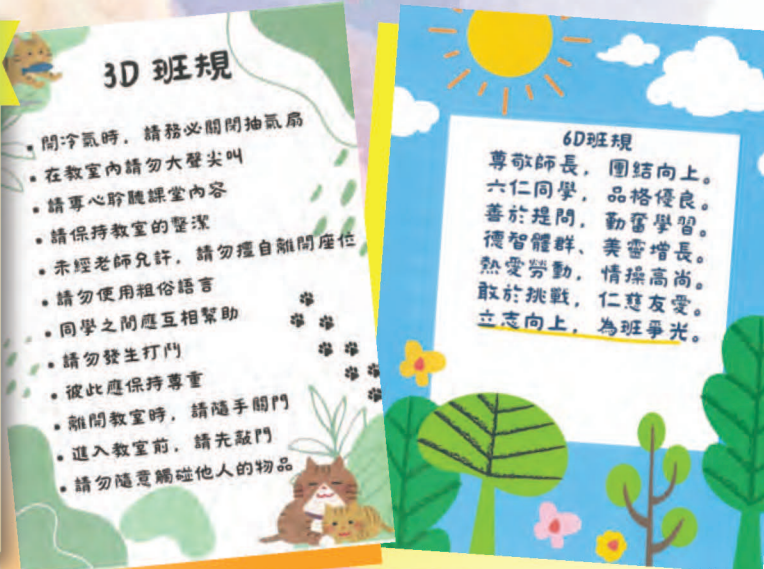 3D 班規
• 開冷氣時，請務必關閉抽氣扇
• 在教室內請勿大聲尖叫
• 請專心聆聽課堂內容
• 請保持教室的整潔
• 未經老師允許，請勿擅自離開座位
• 請勿使用粗俗語言
• 同學之間應互相幫助
• 請勿發生打鬥
• 彼此應保持尊重
• 離開教室時，請隨手關門
• 進入教室前，請先敲門
• 請勿隨意觸碰他人的物品
6D班規
尊敬師長，團結向上。
六仁同學，品格優良。
善於提問，勤奮學習。
德智體群、美靈增長。
熱愛勞動，情操高尚。
敢於挑戰，仁慈友愛。
立志向上，為班爭光。